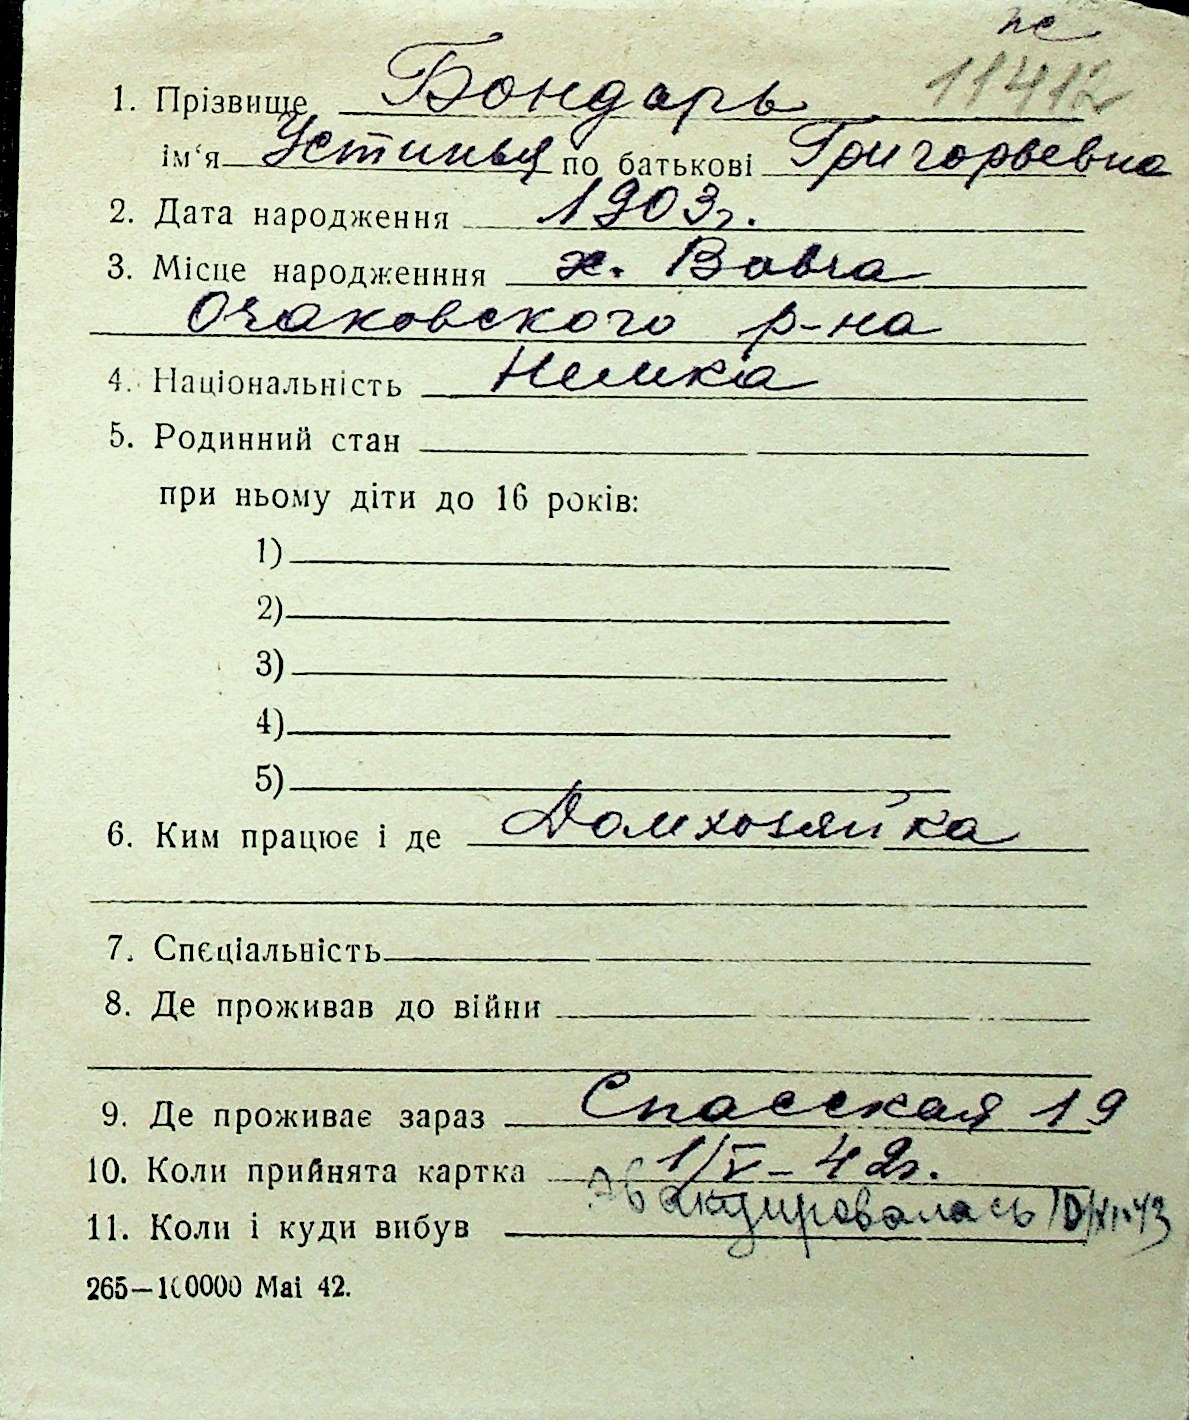 пс
11412
1. Прізвище Бондарь
ім'я Устинья по батькові Григорьевна
2. Дата народження 1903г.
3. Місце народженння х. Вовча
Очаковского р-на
4. Національність Немка
5. Родинний стан
при ньому діти до 16 років:
1)
2)
3)
4)
5)
6. Ким працює і де Домхозяйка
7. Спєціальність
8. Де проживав до війни
9. Де проживає зараз Спасская 19
10. Коли прийнята картка 1/V-42г.
11. Коли і куди вибув Эвакуировалась 10/XI-43
265—100000 Mai 42.